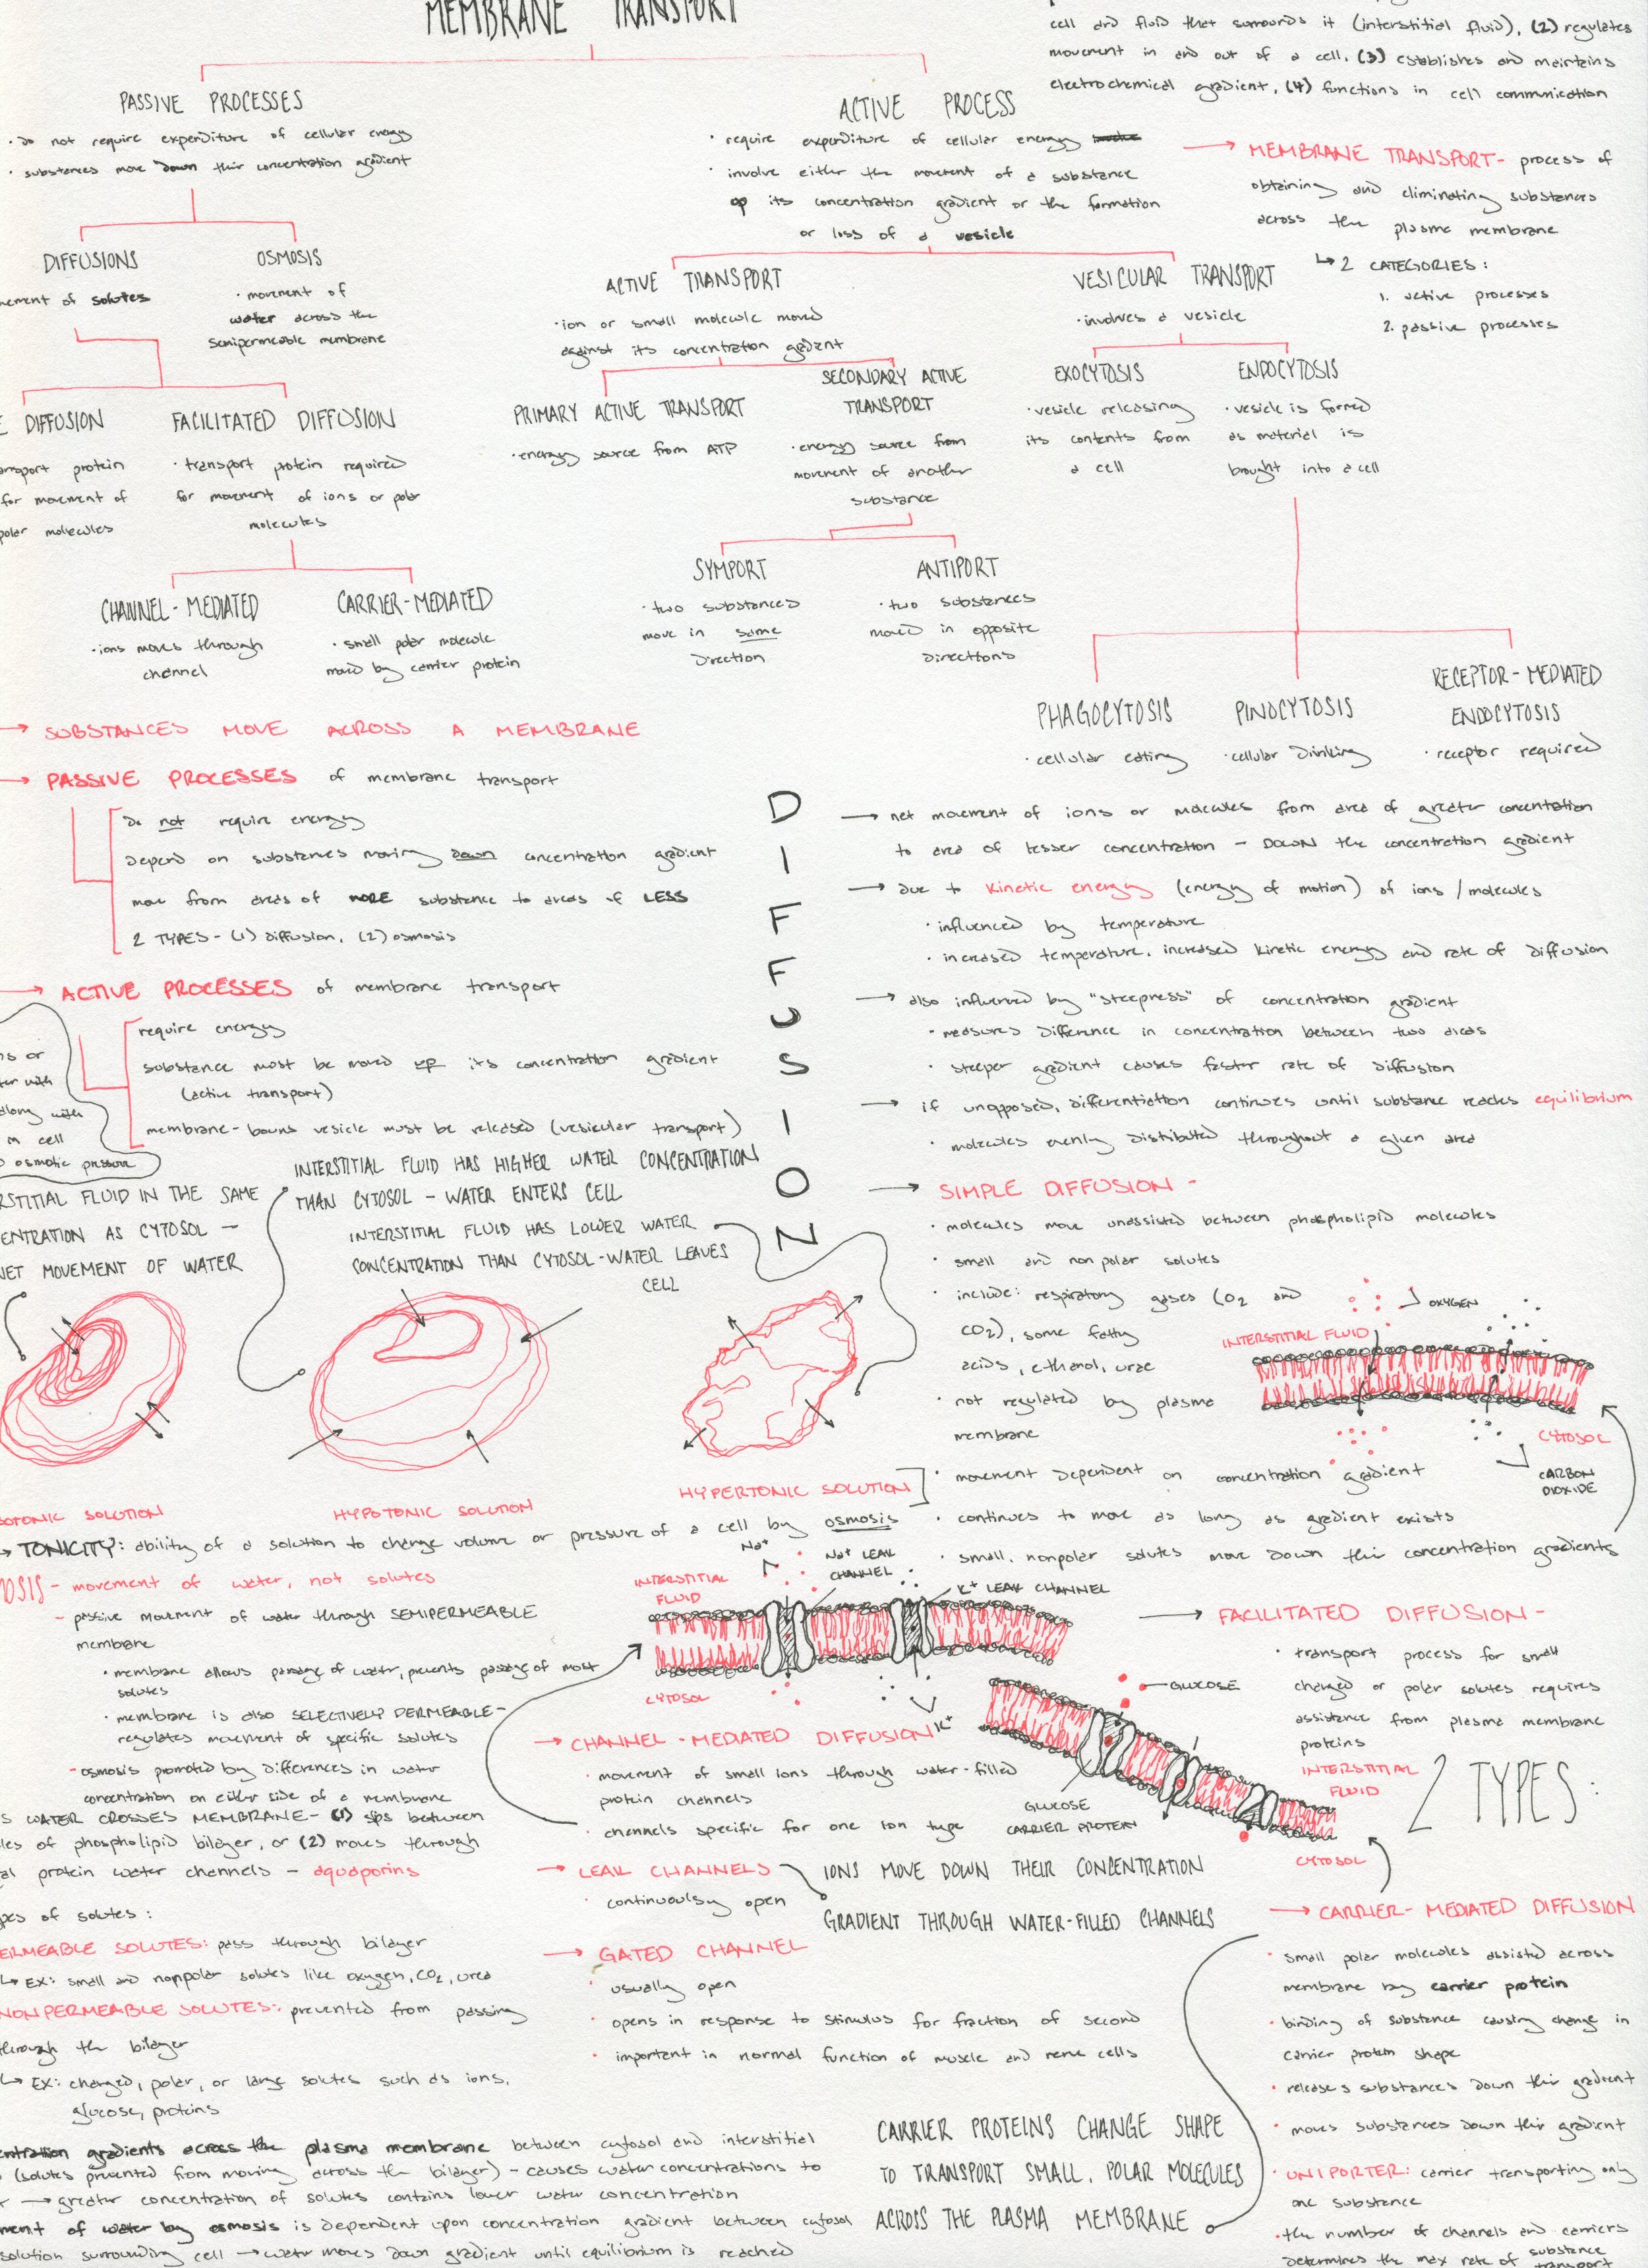 MEMBRANE TRANSPORT
cell and fluid that surrounds it (interstitial fluid), (2) regulates
movement in and out of a cell, (3) establishes and maintains
electrochemical gradient, (4) functions in cell communication
PASSIVE PROCESSES
· do not require expenditure of cellular energy
· substances move down their concentration gradient
ACTIVE PROCESS
· require expenditure of cellular energy
· involve either the movement of a substance
up its concentration gradient or the formation
or loss of a vesicle
→ MEMBRANE TRANSPORT- process of
obtaining and eliminating substances
across the plasma membrane
↳ 2 CATEGORIES:
1. active processes
2. passive processes
DIFFUSIONS
of solutes
OSMOSIS
· movement of
water across the
semipermeable membrane
ACTIVE TRANSPORT
· ion or small molecule moved
against its concentration gradient
VESICULAR TRANSPORT
· involves a vesicle
DIFFUSION
protein
for movement of
molecules
FACILITATED DIFFUSION
· transport protein required
for movement of ions or polar
molecules
PRIMARY ACTIVE TRANSPORT
· energy source from ATP
SECONDARY ACTIVE
TRANSPORT
· energy source from
movement of another
substance
EXOCYTOSIS
· vesicle releasing
its contents from
a cell
ENDOCYTOSIS
· vesicle is formed
as material is
brought into a cell
CHANNEL-MEDIATED
· ions moves through
channel
CARRIER-MEDIATED
· small polar molecule
moved by carrier protein
SYMPORT
· two substances
move in same
direction
ANTIPORT
· two substances
moved in opposite
directions
PHAGOCYTOSIS
· cellular eating
PINOCYTOSIS
· cellular drinking
RECEPTOR-MEDIATED
ENDOCYTOSIS
· receptor required
→ SUBSTANCES MOVE ACROSS A MEMBRANE
→ PASSIVE PROCESSES of membrane transport
do not require energy
depend on substances moving down concentration gradient
move from areas of MORE substance to areas of LESS
2 TYPES - (1) diffusion, (2) osmosis
→ ACTIVE PROCESSES of membrane transport
require energy
substance must be moved up its concentration gradient
(active transport)
membrane-bound vesicle must be released (vesicular transport)
or
with
along with
cell
osmotic pressure
DIFFUSION
→ net movement of ions or molecules from area of greater concentration
to area of lesser concentration - DOWN the concentration gradient
→ due to kinetic energy (energy of motion) of ions/molecules
· influenced by temperature
· increased temperature, increased kinetic energy and rate of diffusion
→ also influenced by "steepness" of concentration gradient
· measures difference in concentration between two areas
· steeper gradient causes faster rate of diffusion
→ if unopposed, differentiation continues until substance reaches equilibrium
· molecules evenly distributed throughout a given area
→ SIMPLE DIFFUSION -
· molecules move unassisted between phospholipid molecules
· small and nonpolar solutes
· include: respiratory gases (O2 and
CO2), some fatty
acids, ethanol, urea
· not regulated by plasma
membrane
· movement dependent on concentration gradient
· continues to move as long as gradient exists
· small, nonpolar solutes move down their concentration gradients
OXYGEN
INTERSTITIAL FLUID
CYTOSOL
CARBON
DIOXIDE
FLUID IN THE SAME
AS CYTOSOL -
MOVEMENT OF WATER
INTERSTITIAL FLUID HAS HIGHER WATER CONCENTRATION
THAN CYTOSOL - WATER ENTERS CELL
INTERSTITIAL FLUID HAS LOWER WATER
CONCENTRATION THAN CYTOSOL-WATER LEAVES
CELL
SOLUTION
HYPOTONIC SOLUTION
HYPERTONIC SOLUTION
→ TONICITY: ability of a solution to change volume or pressure of a cell by osmosis
- movement of water, not solutes
- passive movement of water through SEMIPERMEABLE
membrane
· membrane allows passage of water, prevents passage of most
solutes
· membrane is also SELECTIVELY PERMEABLE-
regulates movement of specific solutes
- osmosis promoted by differences in water
concentration on either side of a membrane
WATER CROSSES MEMBRANE- (1) slips between
of phospholipid bilayer, or (2) moves through
protein water channels - aquaporins
of solutes:
SOLUTES: pass through bilayer
↳ EX: small and nonpolar solutes like oxygen, CO2, urea
NONPERMEABLE SOLUTES: prevented from passing
through the bilayer
↳ EX: charged, polar, or large solutes such as ions,
glucose, proteins
gradients across the plasma membrane between cytosol and interstitial
(solutes prevented from moving across the bilayer) - causes water concentrations to
→ greater concentration of solutes contains lower water concentration
of water by osmosis is dependent upon concentration gradient between cytosol
solution surrounding cell → water moves down gradient until equilibrium is reached
Na+
Na+ LEAK
CHANNEL
K+ LEAK CHANNEL
INTERSTITIAL
FLUID
CYTOSOL
K+
→ CHANNEL-MEDIATED DIFFUSION
· movement of small ions through water-filled
protein channels
· channels specific for one ion type
→ LEAK CHANNELS
· continuoulsy open
IONS MOVE DOWN THEIR CONCENTRATION
GRADIENT THROUGH WATER-FILLED CHANNELS
→ GATED CHANNEL
· usually open
· opens in response to stimulus for fraction of second
· important in normal function of muscle and nerve cells
→ FACILITATED DIFFUSION-
· transport process for small
charged or polar solutes requires
assistance from plasma membrane
proteins
2 TYPES:
GLUCOSE
GLUCOSE
CARRIER PROTEIN
INTERSTITIAL
FLUID
CYTOSOL
→ CARRIER-MEDIATED DIFFUSION
· small polar molecules assisted across
membrane by carrier protein
· binding of substance causing change in
carrier protein shape
· releases substances down their gradient
· moves substances down their gradient
· UNIPORTER: carrier transporting only
one substance
· the number of channels and carriers
determines the max rate of substance
transport
CARRIER PROTEINS CHANGE SHAPE
TO TRANSPORT SMALL, POLAR MOLECULES
ACROSS THE PLASMA MEMBRANE